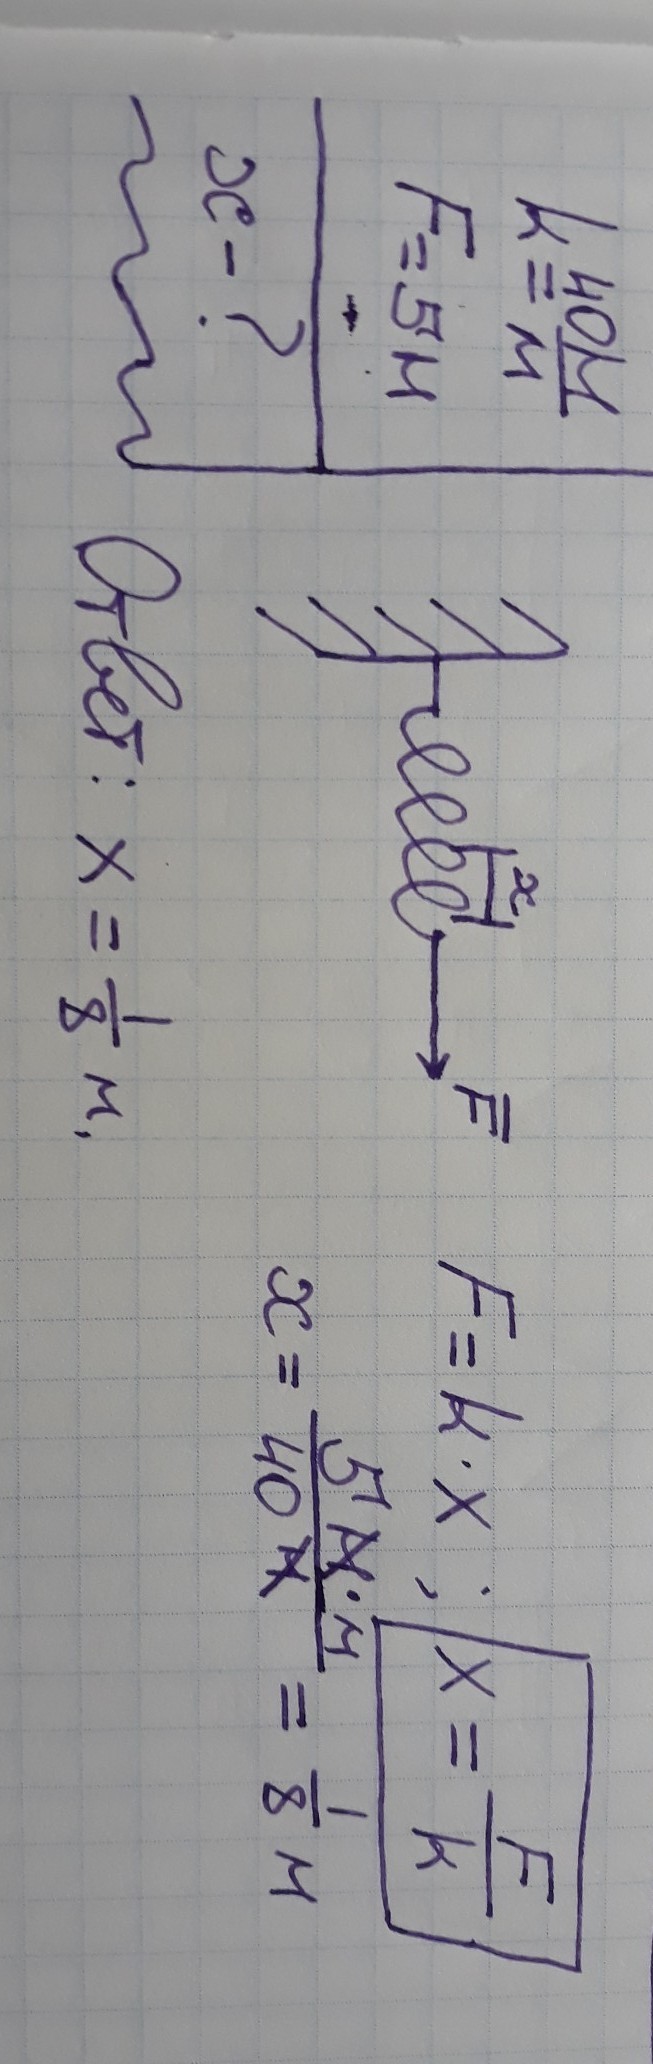 k = 40 Н/м
F = 5 Н
x - ?
x
F
F = k · x ; x = F/k
x = 5 Н · м / 40 Н = 1/8 м
Ответ: x = 1/8 м.